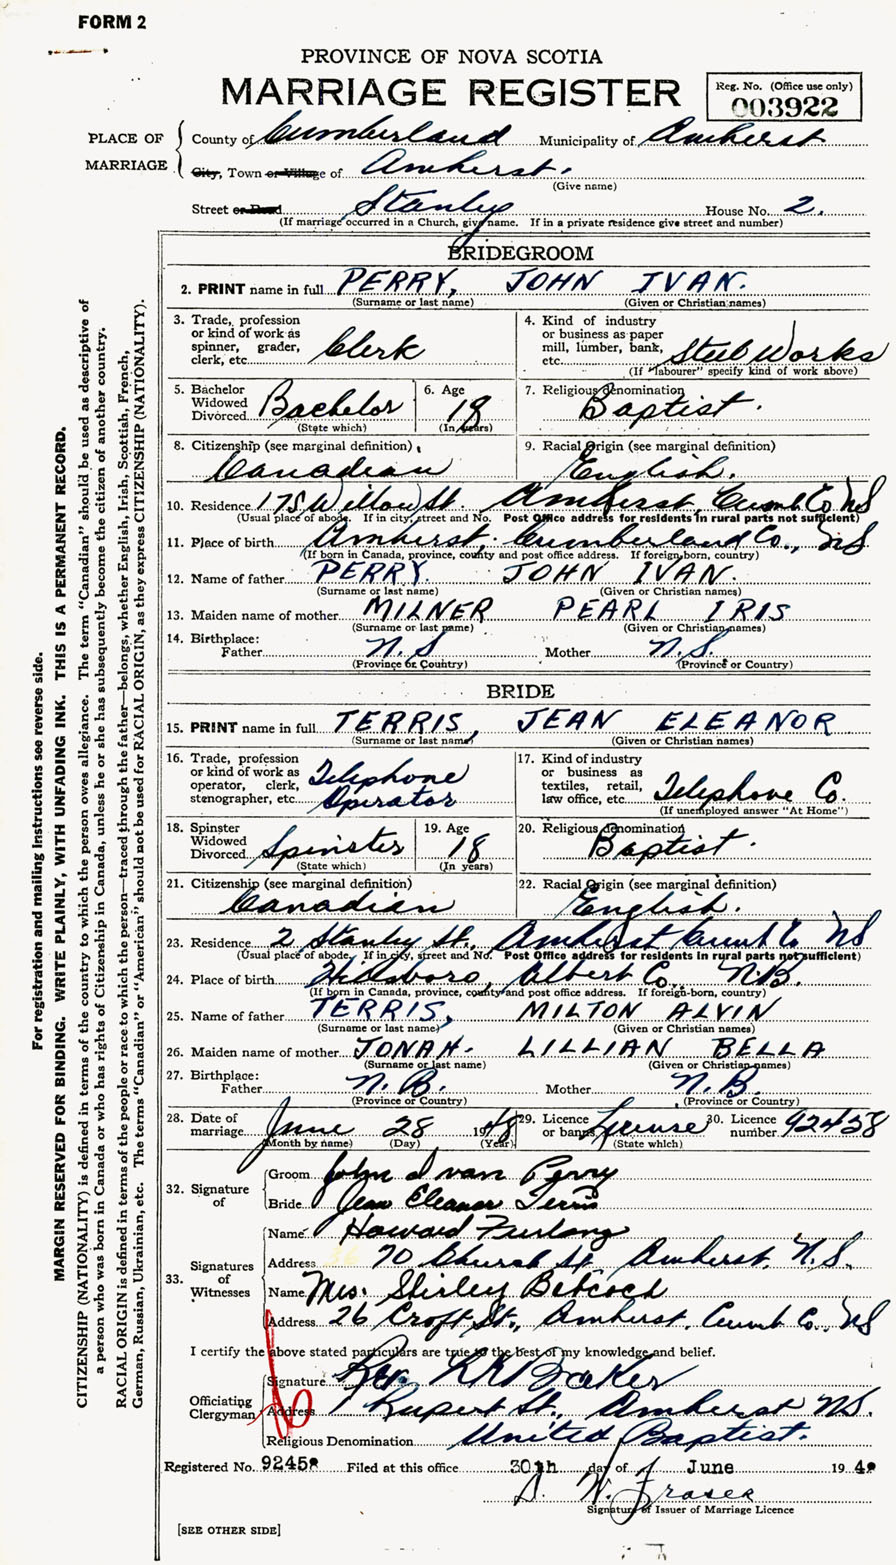 FORM 2
PROVINCE OF NOVA SCOTIA
MARRIAGE REGISTER
Reg. No. (Office use only)
003922
PLACE OF MARRIAGE
County of Cumberland Municipality of Amherst
City, Town or Village of Amherst.
(Give name)
Street or Road Stanley House No. 2.
(If marriage occurred in a Church, give name. If in a private residence give street and number)
BRIDEGROOM
2. PRINT name in full PERRY, JOHN IVAN.
(Surname or last name) (Given or Christian names)
3. Trade, profession or kind of work as spinner, grader, clerk, etc. Clerk
4. Kind of industry or business as paper mill, lumber, bank, etc. Steel Works
(If "labourer" specify kind of work above)
5. Bachelor Widowed Divorced Bachelor
(State which)
6. Age 18
(In years)
7. Religious Denomination Baptist.
8. Citizenship (see marginal definition) Canadian
9. Racial Origin (see marginal definition) English.
10. Residence 175 Willow St. Amherst, Cumb Co NS
(Usual place of abode. If in city, street and No. Post Office address for residents in rural parts not sufficient)
11. Place of birth Amherst, Cumberland Co., NS
(If born in Canada, province, county and post office address. If foreign born, country)
12. Name of father PERRY. JOHN IVAN.
(Surname or last name) (Given or Christian names)
13. Maiden name of mother MILNER PEARL IRIS
(Surname or last name) (Given or Christian names)
14. Birthplace:
Father N.S Mother N.S.
(Province or Country) (Province or Country)
BRIDE
15. PRINT name in full TERRIS, JEAN ELEANOR
(Surname or last name) (Given or Christian names)
16. Trade, profession or kind of work as operator, clerk, stenographer, etc. Telephone Operator
17. Kind of industry or business as textiles, retail, law office, etc. Telephone Co.
(If unemployed answer "At Home")
18. Spinster Widowed Divorced Spinster
(State which)
19. Age 18
(In years)
20. Religious denomination Baptist.
21. Citizenship (see marginal definition) Canadian
22. Racial Origin (see marginal definition) English.
23. Residence 2 Stanley St., Amherst Cumb Co NS
(Usual place of abode. If in city, street and No. Post Office address for residents in rural parts not sufficient)
24. Place of birth Hillsboro, Albert Co., N.B.
(If born in Canada, province, county and post office address. If foreign-born, country)
25. Name of father TERRIS, MILTON ALVIN
(Surname or last name) (Given or Christian names)
26. Maiden name of mother JONAH. LILLIAN BELLA
(Surname or last name) (Given or Christian names)
27. Birthplace:
Father N.B. Mother N.B.
(Province or Country) (Province or Country)
28. Date of marriage June 28 1948
(Month by name) (Day) (Year)
29. Licence or banns License
(State which)
30. Licence number 92458
32. Signature of
Groom John Ivan Perry
Bride Jean Eleanor Terris
33. Signatures of Witnesses
Name Howard Furlong
Address 70 Church St Amherst, N.S.
Name Mrs. Shirley Babcock
Address 26 Croft St., Amherst, Cumb Co., NS
I certify the above stated particulars are true to the best of my knowledge and belief.
Officiating Clergyman
Signature Rev.
Address Rupert St., Amherst NS.
Religious Denomination United Baptist.
Registered No. 92458 Filed at this office 30th day of June 1948
Fraser
Signature of Issuer of Marriage Licence
[SEE OTHER SIDE]
For registration and mailing instructions see reverse side.
MARGIN RESERVED FOR BINDING. WRITE PLAINLY, WITH UNFADING INK. THIS IS A PERMANENT RECORD.
CITIZENSHIP (NATIONALITY) is defined in terms of the country to which the person owes allegiance. The term "Canadian" should be used as descriptive of
a person who was born in Canada or who has rights of Citizenship in Canada, unless he or she has subsequently become the citizen of another country.
RACIAL ORIGIN is defined in terms of the people or race to which the person—traced through the father—belongs, whether English, Irish, Scottish, French,
German, Russian, Ukrainian, etc. The terms "Canadian" or "American" should not be used for RACIAL ORIGIN, as they express CITIZENSHIP (NATIONALITY).